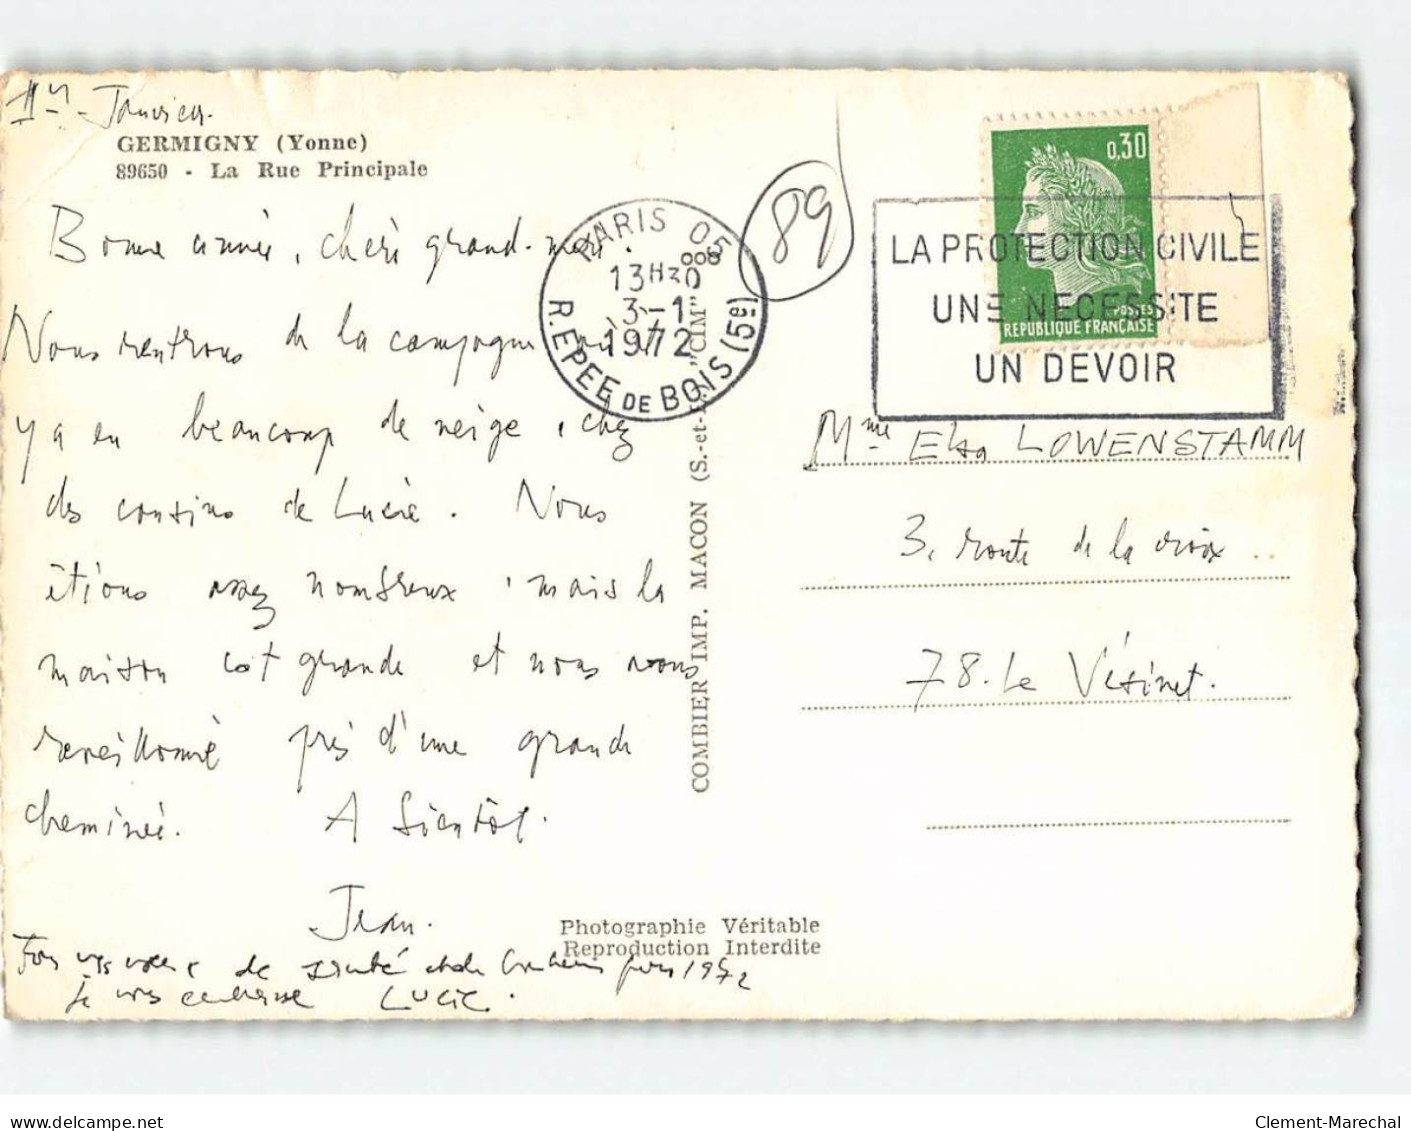 1er Janvier.
GERMIGNY (Yonne)
89650 - La Rue Principale
Bonne année, chère grand-mère.
Nous rentrons de la campagne où il
y a eu beaucoup de neige, chez
des cousins de Lucie. Nous
étions assez nombreux, mais la
maison est grande et nous avons
réveillonné près d'une grande
cheminée. A bientôt.
Jean.
Tous mes voeux de santé et de bonheur pour 1972
Je vous embrasse LUCIE.
COMBIER IMP. MACON (S.-et-L.) "CIM"
Photographie Véritable
Reproduction Interdite
PARIS 05
13H30
3-1
1972
R. EPEE DE BOIS (5e)
89
0,30
POSTES
REPUBLIQUE FRANÇAISE
LA PROTECTION CIVILE
UNE NECESSITE
UN DEVOIR
Mme Elsa LOWENSTAMM
3, route de la croix
78. Le Vésinet.
www.delcampe.net
Clement-Marechal